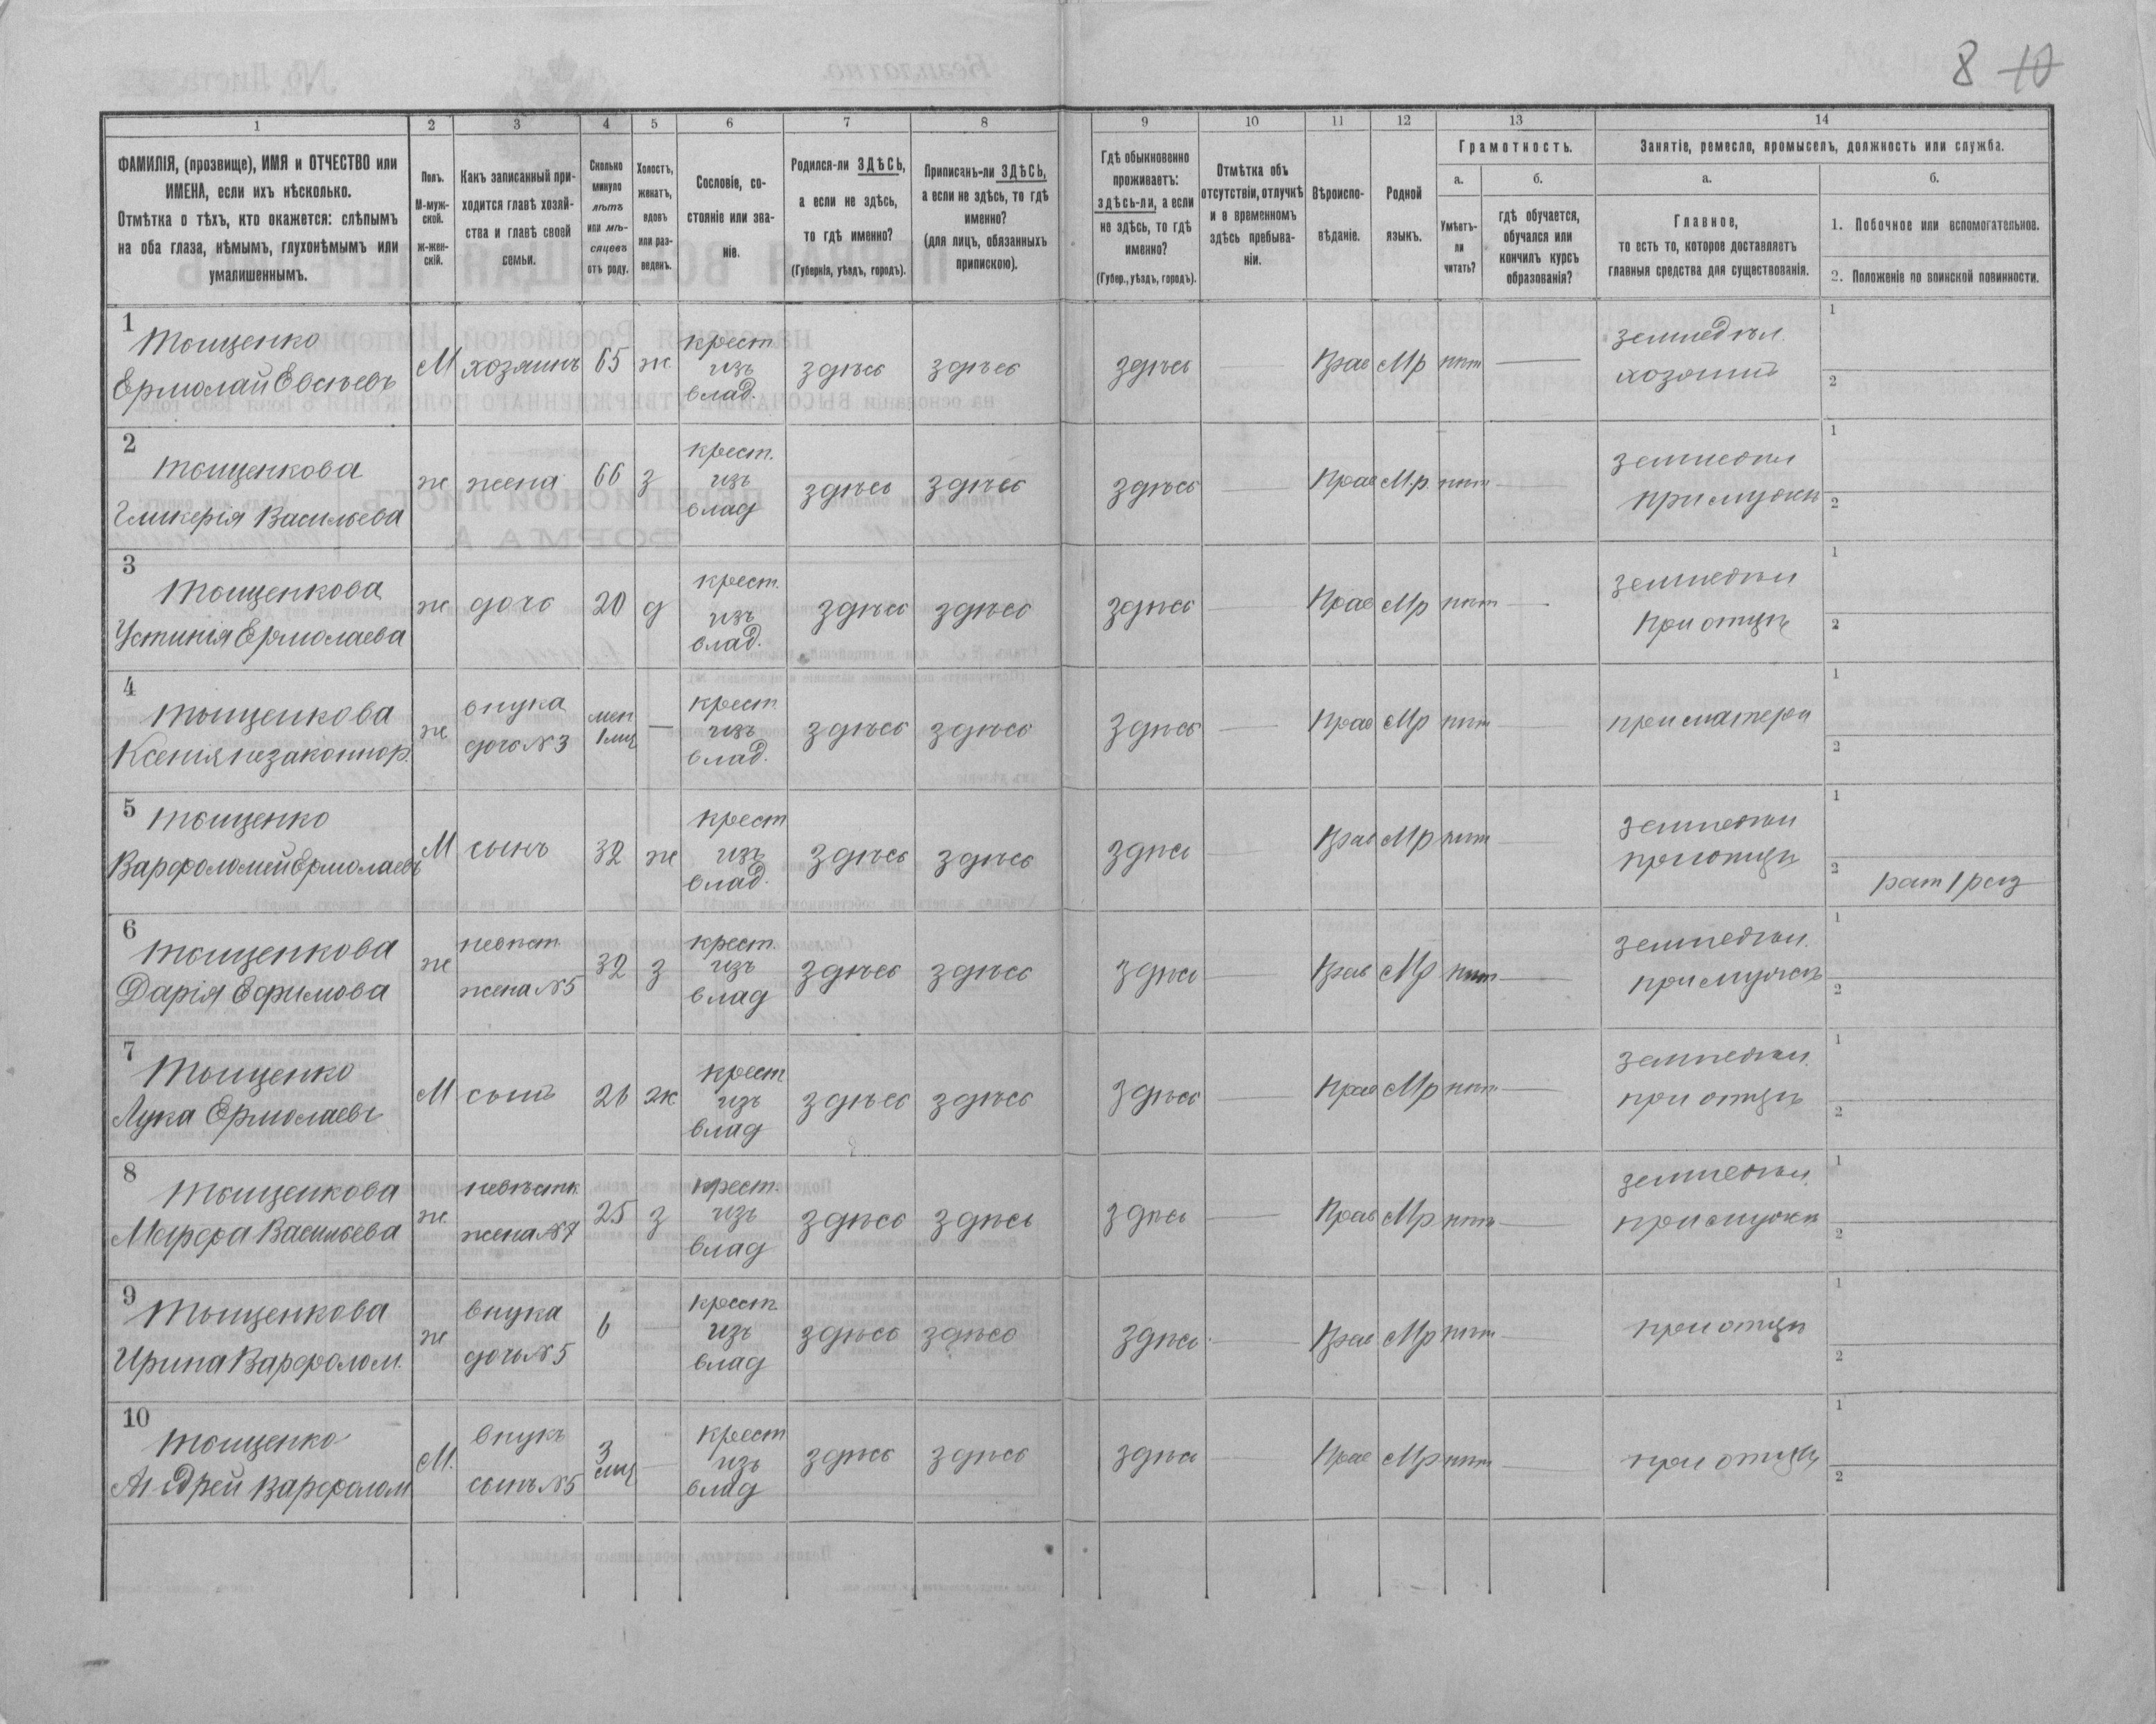 8 10
1 2 3 4 5 6 7 8 9 10 11 12 13 14
ФАМИЛІЯ, (прозвище), ИМЯ и ОТЧЕСТВО или ИМЕНА, если ихъ нѣсколько.
Отмѣтка о тѣхъ, кто окажется: слѣпымъ на оба глаза, нѣмымъ, глухонѣмымъ или умалишеннымъ.
Полъ.
М-мужской.
Ж-женскій.
Какъ записанный приходится главѣ хозяйства и главѣ своей семьи.
Сколько минуло лѣтъ или мѣсяцевъ отъ роду.
Холостъ, женатъ, вдовъ или разведенъ.
Сословіе, состояніе или званіе.
Родился-ли ЗДѢСЬ, а если не здѣсь, то гдѣ именно?
(Губернія, уѣздъ, городъ).
Приписанъ-ли ЗДѢСЬ, а если не здѣсь, то гдѣ именно?
(для лицъ, обязанныхъ припискою).
Гдѣ обыкновенно проживаетъ: здѣсь-ли, а если не здѣсь, то гдѣ именно?
(Губер., уѣздъ, городъ).
Отмѣтка объ отсутствіи, отлучкѣ и о временномъ здѣсь пребываніи.
Вѣроисповѣданіе.
Родной языкъ.
Грамотность.
а.
Умѣетъ-ли читать?
б.
гдѣ обучается, обучался или кончилъ курсъ образованія?
Занятіе, ремесло, промыселъ, должность или служба.
а.
Главное,
то есть то, которое доставляетъ главныя средства для существованія.
б.
1. Побочное или вспомогательное.
2. Положеніе по воинской повинности.
1 Тощенко Ермолай Евсѣевъ М хозяинъ 65 ж крест изъ влад. здѣсь здѣсь здѣсь Прав Мр нѣт — земледѣл. хозяинъ 1 2
2 Тощенкова Гликерія Васильева ж жена 66 з крест. изъ влад здѣсь здѣсь здѣсь — Прав М.р. нѣт — земледѣл при мужѣ 1 2
3 Тощенкова Устинія Ермолаева ж дочь 20 д крест. изъ влад. здѣсь здѣсь здѣсь — Прав Мр нѣт — земледѣл При отцѣ 1 2
4 Тощенкова Ксенія незаконнор. ж внука дочь №3 мен 1 мц — крест изъ влад. здѣсь здѣсь здѣсь — Прав Мр нѣт — при матери 1 2
5 Тощенко Варфоломей Ермолаевъ М сынъ 32 ж крест изъ влад. здѣсь здѣсь здѣсь — Прав Мр нѣт — земледѣл при отцѣ 1 2 рат 1 раз
6 Тощенкова Дарія Ефимова ж невѣст жена №5 32 з крест. изъ влад здѣсь здѣсь здѣсь — Прав Мр нѣт — земледѣл. при мужѣ 1 2
7 Тощенко Лука Ермолаевъ М сынъ 26 ж крест изъ влад здѣсь здѣсь здѣсь — Прав Мр нѣт — земледѣл. при отцѣ 1 2
8 Тощенкова Марфа Васильева ж. невѣстк жена №7 25 з крест. изъ влад здѣсь здѣсь здѣсь — Прав Мр нѣт — земледѣл. при мужѣ 1 2
9 Тощенкова Ирина Варфолом. ж внука дочь №5 6 — крест изъ влад здѣсь здѣсь здѣсь — Прав Мр нѣт — при отцѣ 1 2
10 Тощенко Андрей Варфолом М. внукъ сынъ №5 3 мц — крест изъ влад здѣсь здѣсь здѣсь — Прав Мр нѣт — при отцѣ 1 2